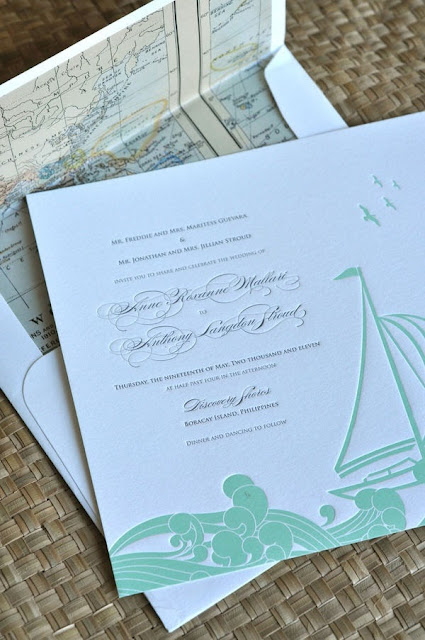 Mr. Freddie and Mrs. Maritess Guevara
&
Mr. Jonathan and Mrs. Jillian Stroud
invite you to share and celebrate the wedding of
Anne Roxanne Mallari
to
Anthony Langdon Stroud
Thursday, the nineteenth of May, Two thousand and eleven
at half past four in the afternoon
Discovery Shores
Boracay Island, Philippines
Dinner and dancing to follow